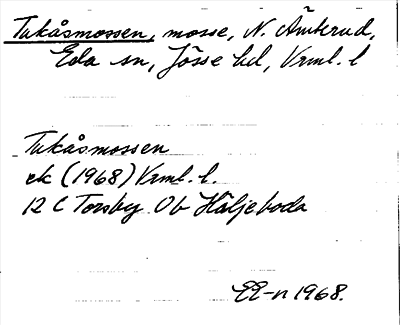 Tukåsmossen, mosse, N. Åmterud,
Eda sn, Jösse hd, Vrml. l
Tukåsmossen
ek (1968) Vrml. l.
12 C Torsby Ob Häljeboda
EE-n 1968.